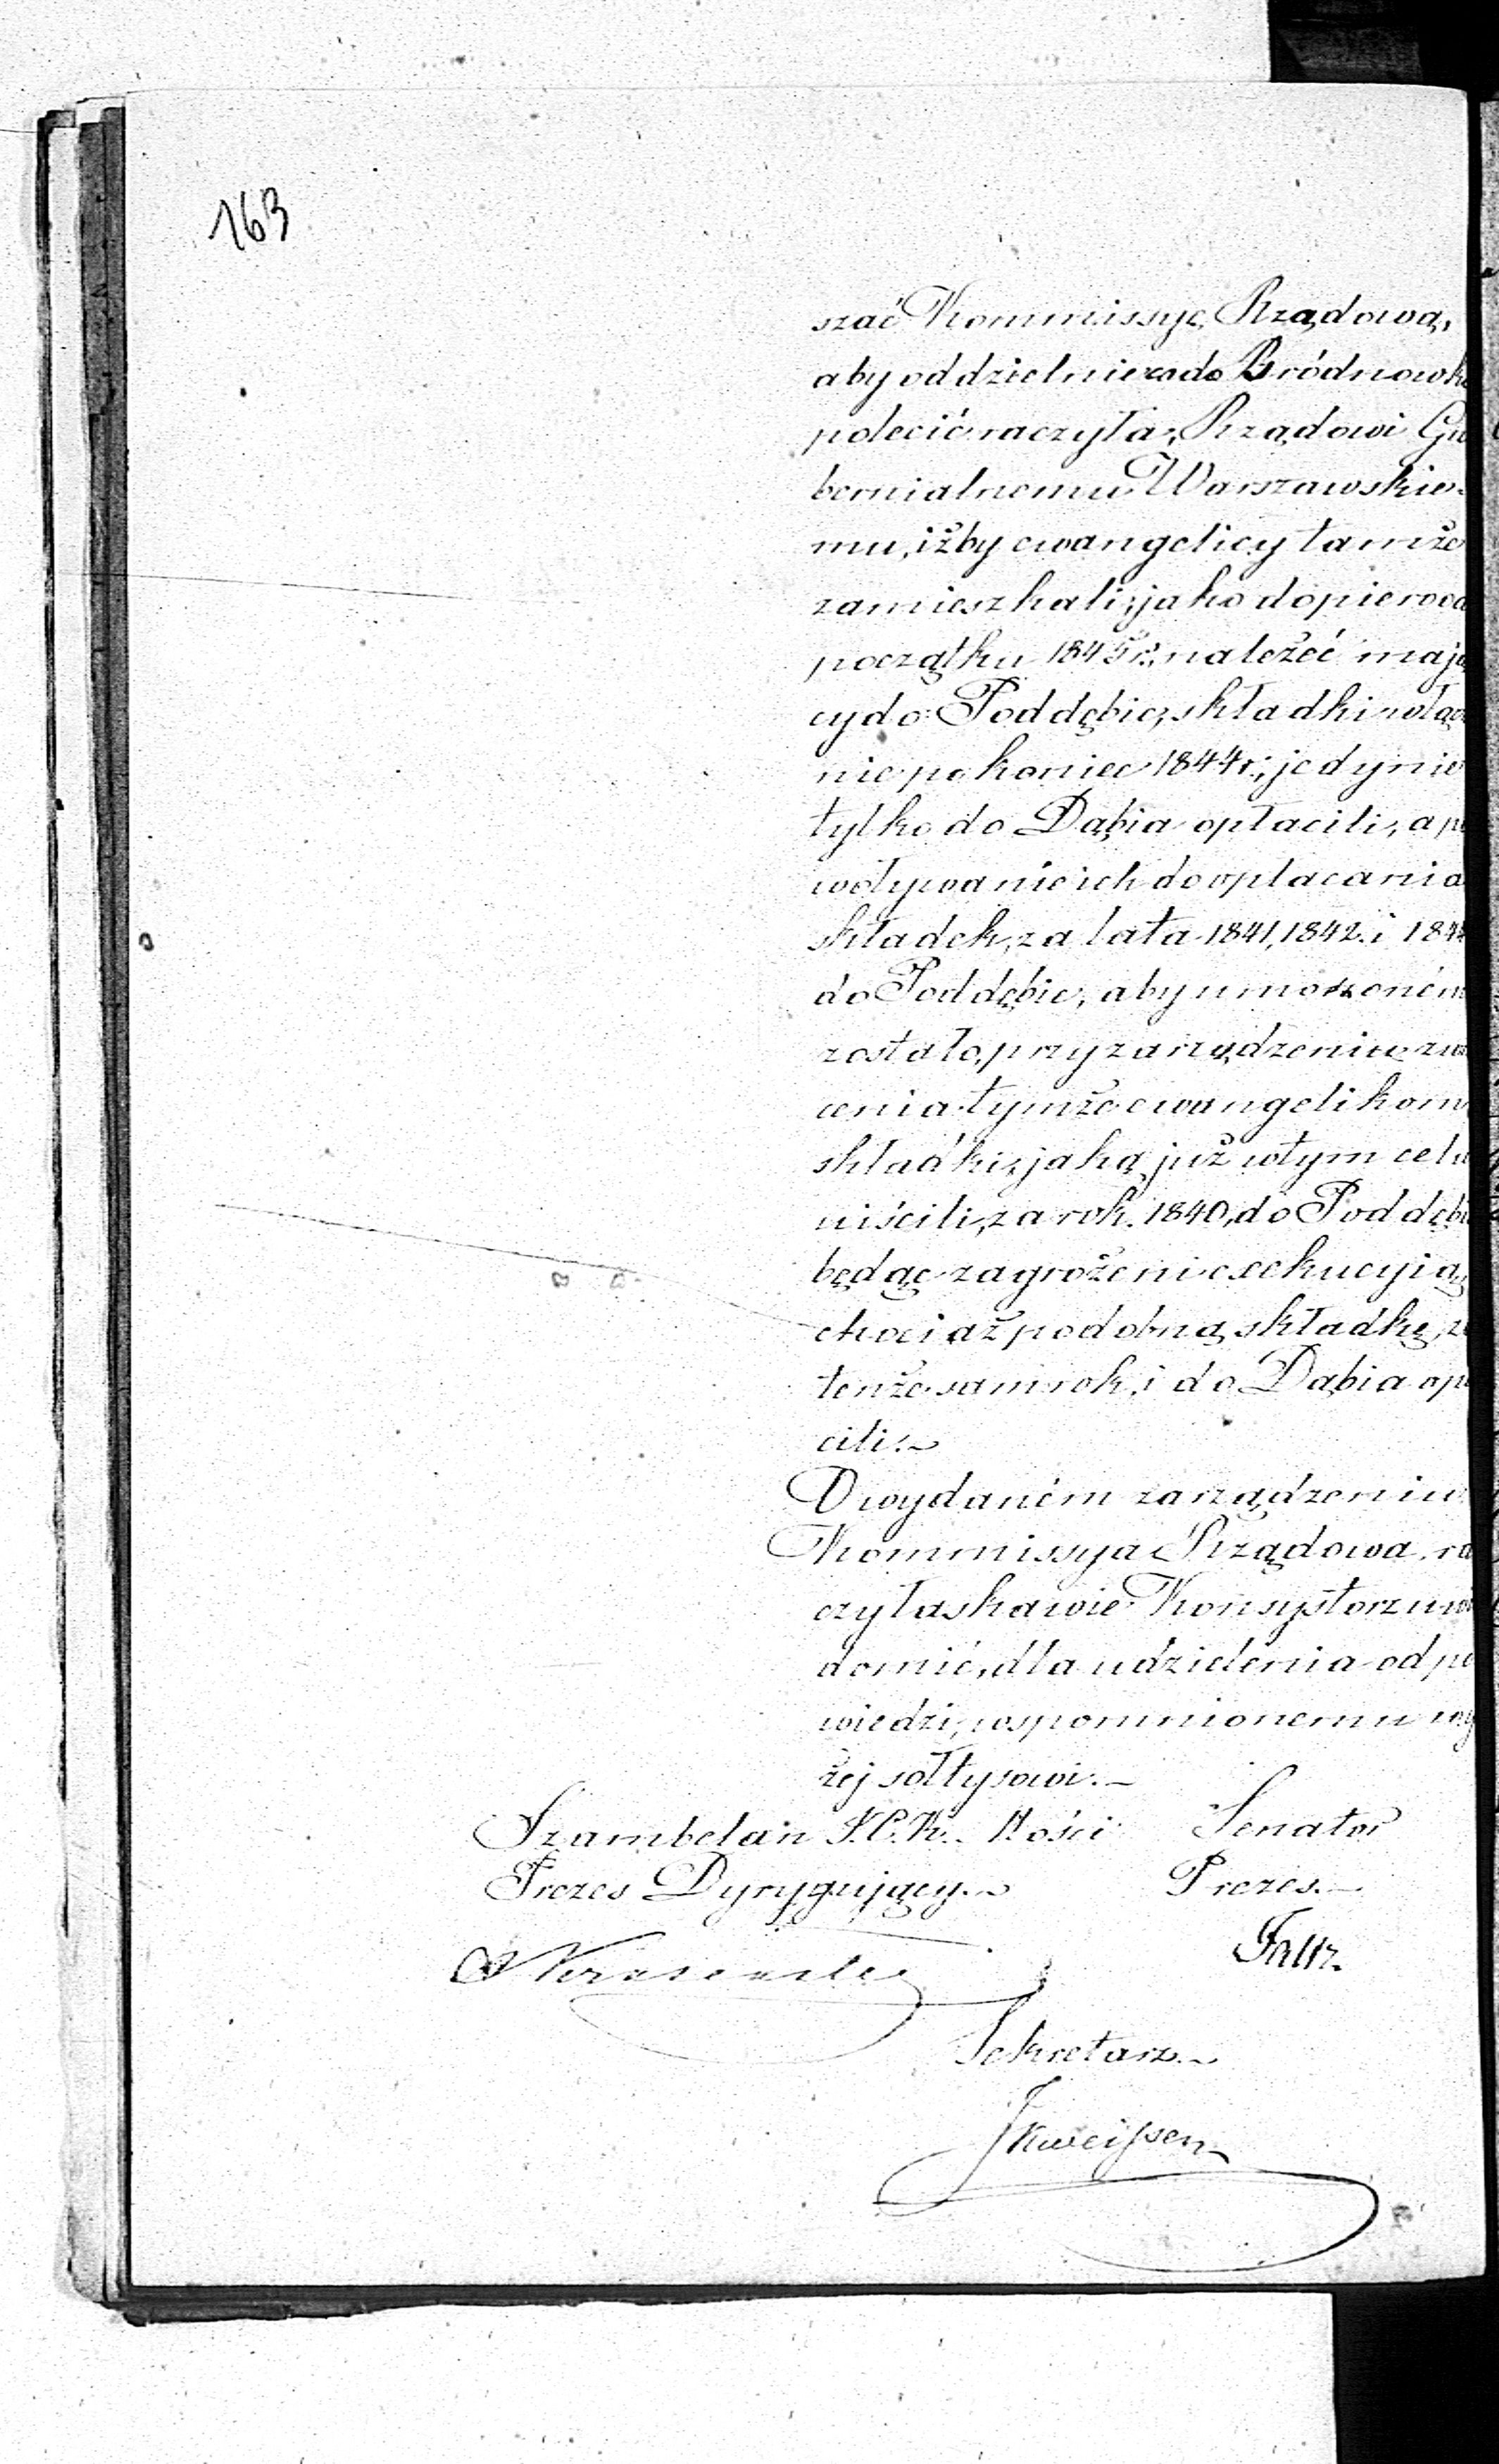 163
szać Kommissyę Rządową,
aby oddzielnie co do Bródnowk
polecić raczyła, Rządowi Gu
bernialnemu Warszawskie-
mu, iżby ewangelicy tamże
zamieszkali, jako dopiero od
początku 1845 r. należeć mają
cy do Poddębic, składki włącz
nie po koniec 1844 r., jedynie
tylko do Dąbia opłacili, a po
woływanie ich do opłacania
składek, za lata 1841, 1842 i 184
do Poddębic, aby umorzoném
zostało, przy zarządzeniu zwr
cenia tymże ewangelikom
składki, jaką już w tym celu
uiścili, za rok 1840, do Poddębi
będąc zagrożeni exekucyją,
chociaż podobną składkę, z
tenże sam rok, i do Dąbia opł
cili.
O wydaném zarządzeniu
Kommissya Rządowa, ra
czy łaskawie Konsystorz uwi
domić, dla udzielenia odpo
wiedzi, wspomnionemu wy
żej sołtysowi.
Szambelan J. C. K. Mości Senator
Prezes Dyrygujący. Prezes.
Sekretarz.